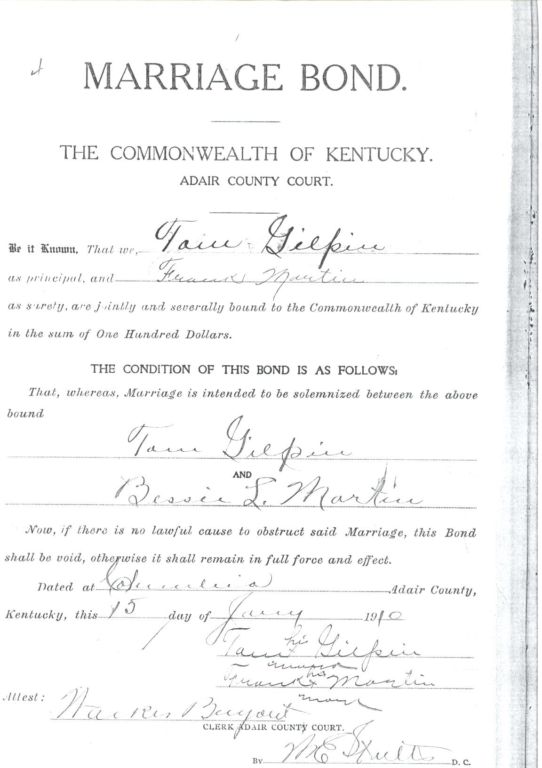 MARRIAGE BOND.
THE COMMONWEALTH OF KENTUCKY.
ADAIR COUNTY COURT.
Be it Known, That we, Tom Gilpin
as principal, and Frank Martin
as surety, are jointly and severally bound to the Commonwealth of Kentucky
in the sum of One Hundred Dollars.
THE CONDITION OF THIS BOND IS AS FOLLOWS:
That, whereas, Marriage is intended to be solemnized between the above
bound
Tom Gilpin
AND
Bessie L. Martin
Now, if there is no lawful cause to obstruct said Marriage, this Bond
shall be void, otherwise it shall remain in full force and effect.
Dated at Columbia Adair County,
Kentucky, this 15 day of Jany 1910
his
Tom Gilpin
mark
his
Frank x Martin
mark
Attest:
CLERK ADAIR COUNTY COURT.
By D. C.